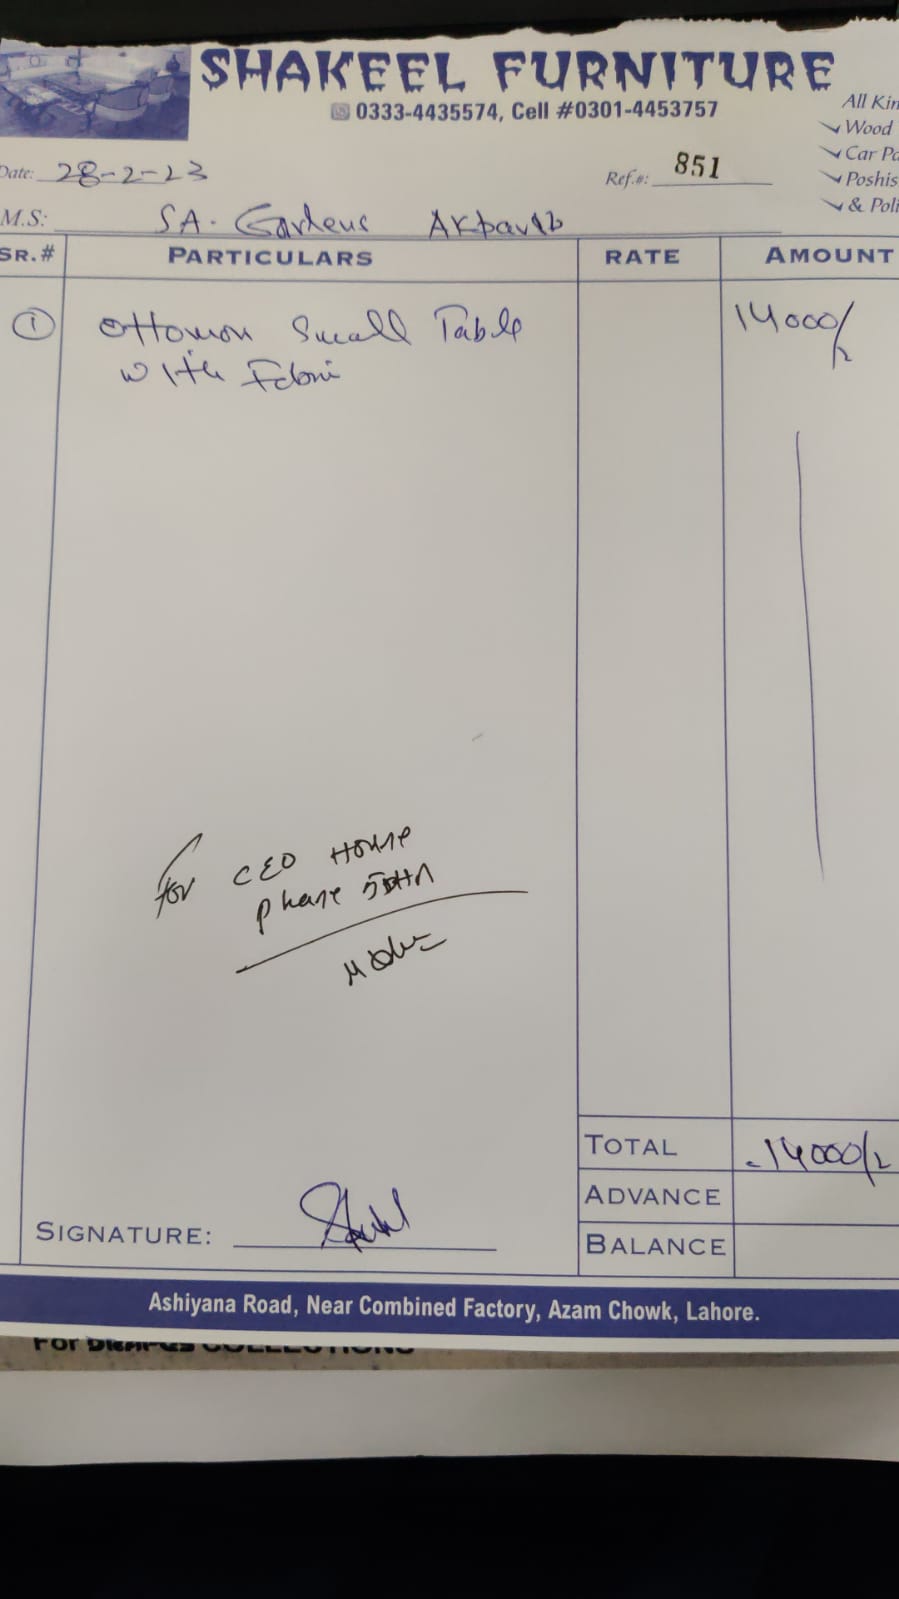 SHAKEEL FURNITURE
0333-4435574, Cell #0301-4453757
All Kin
Wood
Car Po
Poshis
& Poli
Date: 28-2-23
Ref.#: 851
M.S: SA. Gardens
SR.# PARTICULARS RATE AMOUNT
1 ottomon Small Table 14000/
with
For CEO House
phase 5 DHA
TOTAL 14000/
ADVANCE
BALANCE
SIGNATURE:
Ashiyana Road, Near Combined Factory, Azam Chowk, Lahore.
For DRAPES COLLECTIONS